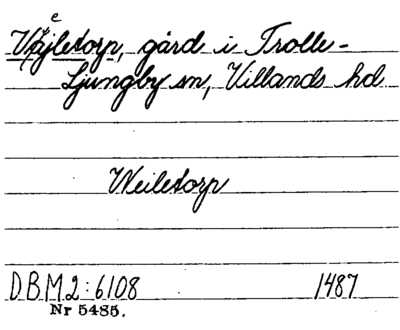 Väjletorp, gård i Trolle-
Ljungby sn, Villands hd
Weiletorp
DBM2:6108 1487
Nr 5485.